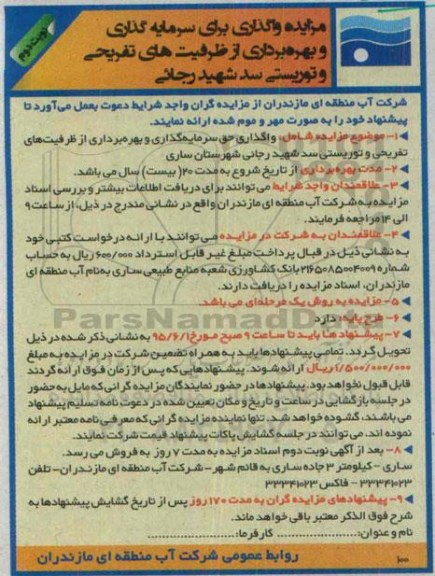 مزایده واگذاری برای سرمایه گذاری
و بهره‌برداری از ظرفیت های تفریحی
و توریستی سد شهید رجائی
نوبت دوم
شرکت آب منطقه ای مازندران از مزایده گران واجد شرایط دعوت بعمل می‌آورد تا
پیشنهاد خود را به صورت مهر و موم شده ارائه نمایند.
۱- موضوع مزایده شامل: واگذاری حق سرمایه‌گذاری و بهره‌برداری از ظرفیت‌های
تفریحی و توریستی سد شهید رجایی شهرستان ساری
۲- مدت بهره‌برداری از تاریخ شروع به مدت ۲۰( بیست) سال می باشد.
۳- علاقمندان واجد شرایط می توانند برای دریافت اطلاعات بیشتر و بررسی اسناد
مزایده به شرکت آب منطقه ای مازندران واقع در نشانی مندرج در ذیل، از ساعت ۹
الی ۱۴ مراجعه فرمایند.
۴- علاقمندان به شرکت در مزایده می توانند با ارائه درخواست کتبی خود
به نشانی ذیل در قبال پرداخت مبلغ غیر قابل استرداد ۶۰۰/۰۰۰ ریال به حساب
شماره ۲۱۶۵۰۸۵۰۰۴۰۰۹ بانک کشاورزی شعبه منابع طبیعی ساری به‌نام آب منطقه ای
مازندران، اسناد مزایده را دریافت دارند.
۵- مزایده به روش یک مرحله‌ای می باشد.
۶- طرح پایه: دارد
۷- پیشنهاد ها باید تا ساعت ۹ صبح مورخ ۹۵/۶/۱ به نشانی ذکر شده در ذیل
تحویل گردد. تمامی پیشنهادها باید به همراه تضمین شرکت در مزایده به مبلغ
۱/۵۰۰/۰۰۰/۰۰۰ ریال ارائه شوند. پیشنهادهایی که پس از زمان فوق ارائه گردند
قابل قبول نخواهد بود. پیشنهادها در حضور نمایندگان مزایده گرانی که مایل به حضور
در جلسه بازگشایی در ساعت و تاریخ و مکان تعیین شده در دعوت نامه تسلیم پیشنهاد
می باشند، گشوده خواهد شد. تنها نماینده مزایده گرانی که معرفی نامه معتبر ارائه
نموده اند، می توانند در جلسه گشایش پاکات پیشنهاد قیمت شرکت نمایند.
۸- بعد از آگهی نوبت دوم اسناد مزایده به مدت ۷ روز به فروش می رسد.
ساری - کیلومتر ۳ جاده ساری به قائم شهر - شرکت آب منطقه ای مازندران - تلفن
۳۳۳۴۱۰۲۳ - فاکس ۳۳۳۴۱۰۲۳
۹- پیشنهادهای مزایده گران به مدت ۱۷۰ روز پس از تاریخ گشایش پیشنهادها به
شرح فوق الذکر معتبر باقی خواهد ماند.
نام و عنوان:................ کارفرما:................
روابط عمومی شرکت آب منطقه ای مازندران
ParsNamadData